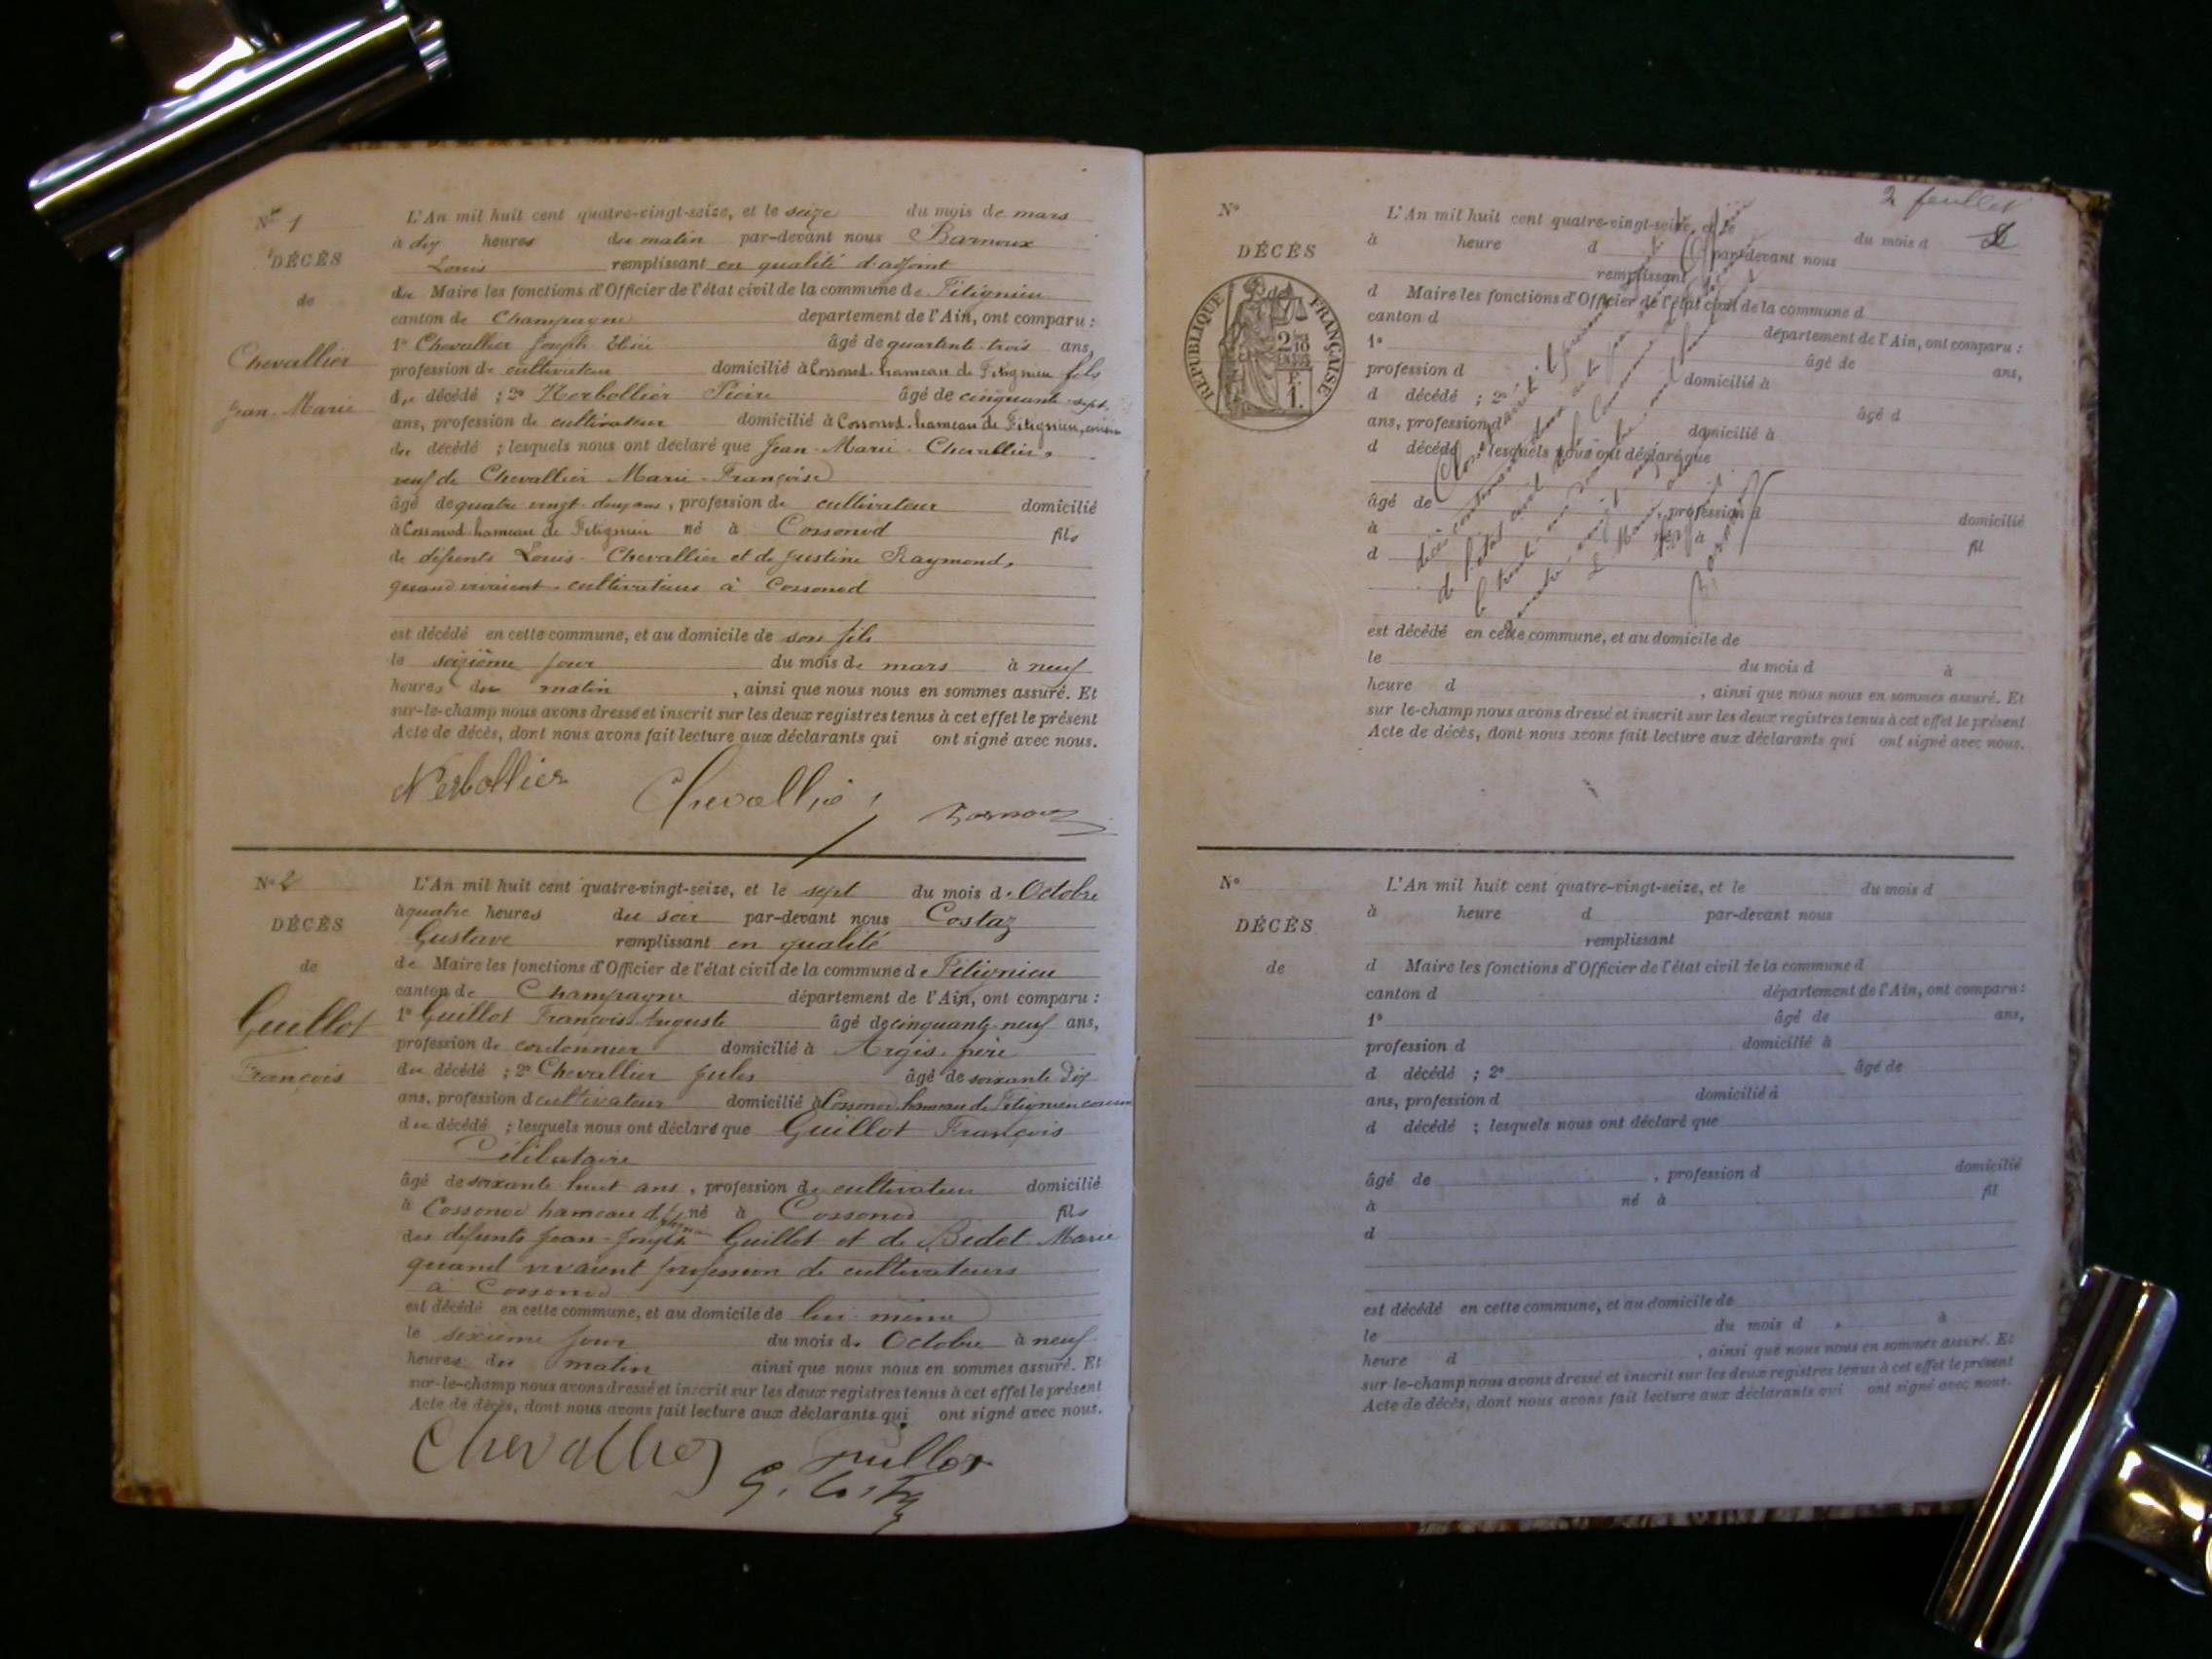 N° 1
DÉCÈS
de
Chevallier
Jean-Marie
L'An mil huit cent quatre-vingt-seize, et le seize du mois de mars
à dix heures du matin par-devant nous Barnoux
Louis remplissant en qualité d'adjoint
du Maire les fonctions d'Officier de l'état civil de la commune de Fitignieu
canton de Champagne département de l'Ain, ont comparu :
1° Chevallier Joseph âgé de quarente-trois ans,
profession de cultivateur domicilié à Cossonod. hameau de Fitignieu fils
du décédé ; 2° Nerbollier Pierre âgé de cinquante-sept
ans, profession de cultivateur domicilié à Cossonod. hameau de Fitignieu,
du décédé ; lesquels nous ont déclaré que Jean-Marie Chevallier,
veuf de Chevallier Marie-Françoise
âgé de quatre vingt-deux ans, profession de cultivateur domicilié
à Cossonod hameau de Fitignieu né à Cossonod fils
de défunts Louis Chevallier et de Justine Raymond,
quand vivaient cultivateurs à Cossonod
est décédé en cette commune, et au domicile de son fils
le seizième jour du mois de mars à neuf
heures du matin , ainsi que nous nous en sommes assuré. Et
sur-le-champ nous avons dressé et inscrit sur les deux registres tenus à cet effet le présent
Acte de décès, dont nous avons fait lecture aux déclarants qui ont signé avec nous.
Nerbollier Chevallier Barnoux
N° 2
DÉCÈS
de
Guillot
François
L'An mil huit cent quatre-vingt-seize, et le sept du mois d'Octobre
à quatre heures du soir par-devant nous Costaz
Gustave remplissant en qualité
de Maire les fonctions d'Officier de l'état civil de la commune de Fitignieu
canton de Champagne département de l'Ain, ont comparu :
1° Guillot François Auguste âgé de cinquante-neuf ans,
profession de cordonnier domicilié à Argis, frère
du décédé ; 2° Chevallier Jules âgé de soixante dix
ans, profession d cultivateur domicilié à Cossonod hameau de Fitignieu cousin
du décédé ; lesquels nous ont déclaré que Guillot François
Célibataire
âgé de soixante huit ans, profession de cultivateur domicilié
à Cossonod hameau de Fitignieu né à Cossonod fils
des défunts Jean-Joseph Guillot et de Bidet Marie
quand vivaient profession de cultivateurs
à Cossonod
est décédé en cette commune, et au domicile de lui même
le sixième jour du mois d'Octobre à neuf
heures du matin ainsi que nous nous en sommes assuré. Et
sur-le-champ nous avons dressé et inscrit sur les deux registres tenus à cet effet le présent
Acte de décès, dont nous avons fait lecture aux déclarants qui ont signé avec nous.
Chevallier Guillot
G. Costaz
2 feuillet
N°
DÉCÈS
de
RÉPUBLIQUE FRANÇAISE
L'An mil huit cent quatre-vingt-seize, et le du mois d
à heure d par-devant nous
remplissant
d Maire les fonctions d'Officier de l'état civil de la commune d
canton d département de l'Ain, ont comparu :
1° âgé de ans,
profession d domicilié à
d décédé ; 2° âgé d
ans, profession d domicilié à
d décédé ; lesquels nous ont déclaré que
âgé de , profession d domicilié
à né à fil
d
est décédé en cette commune, et au domicile de
le du mois d à
heure d , ainsi que nous nous en sommes assuré. Et
sur-le-champ nous avons dressé et inscrit sur les deux registres tenus à cet effet le présent
Acte de décès, dont nous avons fait lecture aux déclarants qui ont signé avec nous.
N°
DÉCÈS
de
L'An mil huit cent quatre-vingt-seize, et le du mois d
à heure d par-devant nous
remplissant
d Maire les fonctions d'Officier de l'état civil de la commune d
canton d département de l'Ain, ont comparu :
1° âgé de ans,
profession d domicilié à
d décédé ; 2° âgé de
ans, profession d domicilié à
d décédé ; lesquels nous ont déclaré que
âgé de , profession d domicilié
à né à fil
d
est décédé en cette commune, et au domicile de
le du mois d à
heure d , ainsi que nous nous en sommes assuré. Et
sur-le-champ nous avons dressé et inscrit sur les deux registres tenus à cet effet le présent
Acte de décès, dont nous avons fait lecture aux déclarants qui ont signé avec nous.